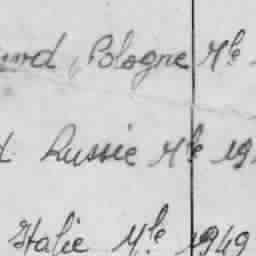 Pologne Mle
Russie Mle 19
Italie Mle 1949